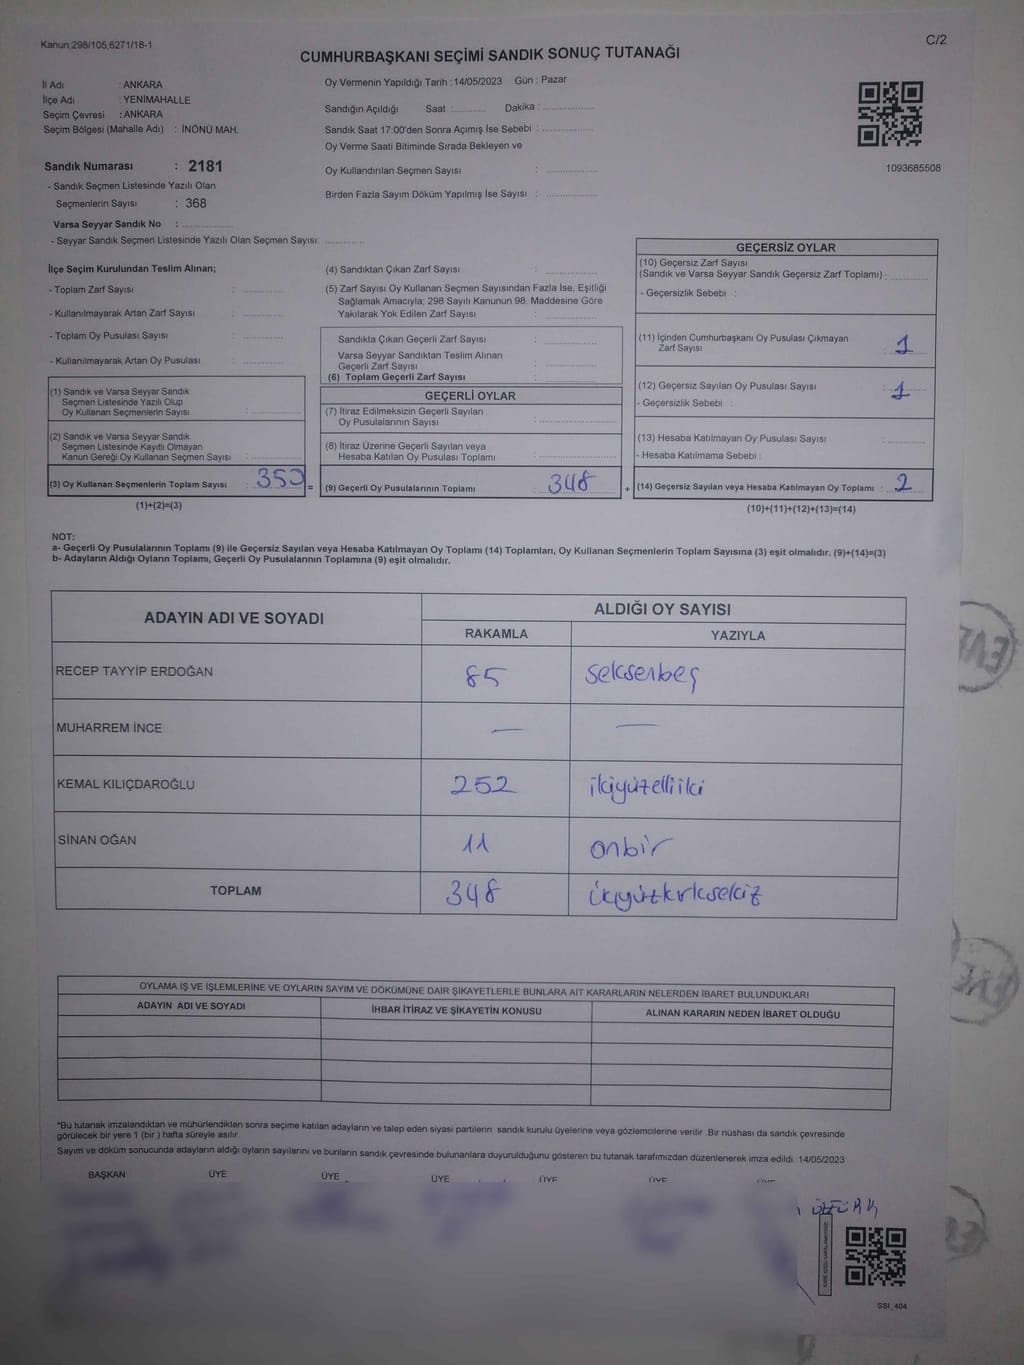 Kanun;298/105;6271/18-1
C/2
CUMHURBAŞKANI SEÇİMİ SANDIK SONUÇ TUTANAĞI
İl Adı : ANKARA
İlçe Adı : YENİMAHALLE
Seçim Çevresi : ANKARA
Seçim Bölgesi (Mahalle Adı) : İNÖNÜ MAH.
Sandık Numarası : 2181
- Sandık Seçmen Listesinde Yazılı Olan
Seçmenlerin Sayısı : 368
Varsa Seyyar Sandık No : ..................
- Seyyar Sandık Seçmen Listesinde Yazılı Olan Seçmen Sayısı: ..............
Oy Vermenin Yapıldığı Tarih : 14/05/2023 Gün : Pazar
Sandığın Açıldığı Saat :........... Dakika : ..................
Sandık Saat 17:00'den Sonra Açımış İse Sebebi : ..................
Oy Verme Saati Bitiminde Sırada Bekleyen ve
Oy Kullandırılan Seçmen Sayısı : ..................
Birden Fazla Sayım Döküm Yapılmış İse Sayısı : ..................
1093685508
İlçe Seçim Kurulundan Teslim Alınan;
- Toplam Zarf Sayısı : ..............
- Kullanılmayarak Artan Zarf Sayısı : ..............
- Toplam Oy Pusulası Sayısı : ..............
- Kullanılmayarak Artan Oy Pusulası : ..............
(1) Sandık ve Varsa Seyyar Sandık
Seçmen Listesinde Yazılı Olup
Oy Kullanan Seçmenlerin Sayısı : ..................
(2) Sandık ve Varsa Seyyar Sandık
Seçmen Listesinde Kayıtlı Olmayan
Kanun Gereği Oy Kullanan Seçmen Sayısı : ..................
(3) Oy Kullanan Seçmenlerin Toplam Sayısı : 350 =
(1)+(2)=(3)
(4) Sandıktan Çıkan Zarf Sayısı : ..................
(5) Zarf Sayısı Oy Kullanan Seçmen Sayısından Fazla İse, Eşitliği
Sağlamak Amacıyla; 298 Sayılı Kanunun 98. Maddesine Göre
Yakılarak Yok Edilen Zarf Sayısı : ..................
Sandıkta Çıkan Geçerli Zarf Sayısı : ..................
Varsa Seyyar Sandıktan Teslim Alınan
Geçerli Zarf Sayısı : ..................
(6) Toplam Geçerli Zarf Sayısı : ..................
GEÇERLİ OYLAR
(7) İtiraz Edilmeksizin Geçerli Sayılan
Oy Pusulalarının Sayısı : ..................
(8) İtiraz Üzerine Geçerli Sayılan veya
Hesaba Katılan Oy Pusulası Toplamı : ..................
(9) Geçerli Oy Pusulalarının Toplamı : 348 +
GEÇERSİZ OYLAR
(10) Geçersiz Zarf Sayısı
(Sandık ve Varsa Seyyar Sandık Geçersiz Zarf Toplamı) : ..............
- Geçersizlik Sebebi :
(11) İçinden Cumhurbaşkanı Oy Pusulası Çıkmayan
Zarf Sayısı : 1
(12) Geçersiz Sayılan Oy Pusulası Sayısı : 1
- Geçersizlik Sebebi :
(13) Hesaba Katılmayan Oy Pusulası Sayısı : ..............
- Hesaba Katılmama Sebebi :
(14) Geçersiz Sayılan veya Hesaba Katılmayan Oy Toplamı : 2
(10)+(11)+(12)+(13)=(14)
NOT:
a- Geçerli Oy Pusulalarının Toplamı (9) ile Geçersiz Sayılan veya Hesaba Katılmayan Oy Toplamı (14) Toplamları, Oy Kullanan Seçmenlerin Toplam Sayısına (3) eşit olmalıdır. (9)+(14)=(3)
b- Adayların Aldığı Oyların Toplamı, Geçerli Oy Pusulalarının Toplamına (9) eşit olmalıdır.
ADAYIN ADI VE SOYADI ALDIĞI OY SAYISI
RAKAMLA YAZIYLA
RECEP TAYYİP ERDOĞAN 85 seksenbeş
MUHARREM İNCE — —
KEMAL KILIÇDAROĞLU 252 ikiyüzelliiki
SİNAN OĞAN 11 onbir
TOPLAM 348 üçyüzkırksekiz
OYLAMA İŞ VE İŞLEMLERİNE VE OYLARIN SAYIM VE DÖKÜMÜNE DAİR ŞİKAYETLERLE BUNLARA AİT KARARLARIN NELERDEN İBARET BULUNDUKLARI
ADAYIN ADI VE SOYADI İHBAR İTİRAZ VE ŞİKAYETİN KONUSU ALINAN KARARIN NEDEN İBARET OLDUĞU
*Bu tutanak imzalandıktan ve mühürlendikten sonra seçime katılan adayların ve talep eden siyasi partilerin sandık kurulu üyelerine veya gözlemcilerine verilir .Bir nüshası da sandık çevresinde
görülecek bir yere 1 (bir ) hafta süreyle asılır.
Sayım ve döküm sonucunda adayların aldığı oyların sayılarını ve bunların sandık çevresinde bulunanlara duyurulduğunu gösteren bu tutanak tarafımızdan düzenlenerek imza edildi. 14/05/2023
BAŞKAN ÜYE ÜYE ÜYE ÜYE ÜYE ÜYE
ÖZTÜRK
SSI_404